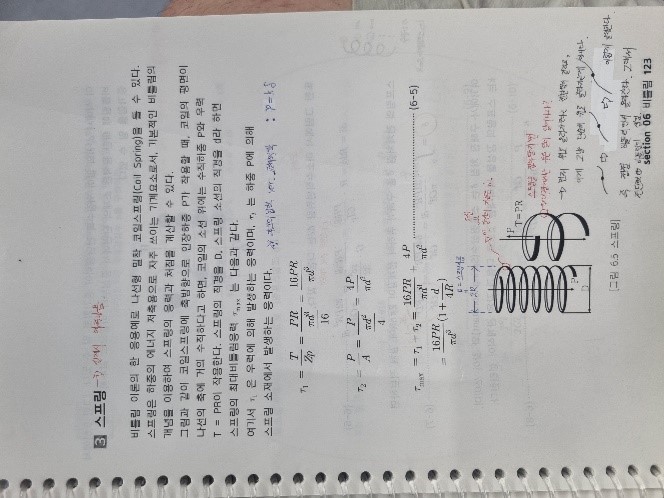 3 스프링
비틀림 이론의 한 응용예로 나선형 밀착 코일스프링(Coil Spring)을 들 수 있다.
스프링은 하중의 에너지 저축용으로 자주 쓰이는 기계요소로서, 기본적인 비틀림의
개념을 이용하여 스프링의 응력과 처짐을 계산할 수 있다.
그림과 같이 코일스프링에 축방향으로 인장하중 P가 작용할 때, 코일의 평면이
나선의 축에 거의 수직하다고 하면, 코일의 소선 위에는 수직하중 P와 우력
T = PR이 작용한다. 스프링의 직경을 D, 스프링 소선의 직경을 d라 하면
스프링의 최대비틀림응력 τmax 는 다음과 같다.
여기서 τ₁ 은 우력에 의해 발생하는 응력이며, τ₂ 는 하중 P에 의해
스프링 소재에서 발생하는 응력이다. : P=kδ
τ₁ = T/Zp = PR/(πd³/16) = 16PR/πd³
τ₂ = P/A = P/(πd²/4) = 4P/πd²
τmax = τ₁ + τ₂ = 16PR/πd³ + 4P/πd²
= 16PR/πd³ (1 + d/4R) (6-5)
2R
P
T = PR
P
D
[그림 6.5 스프링]
section 06 비틀림 123